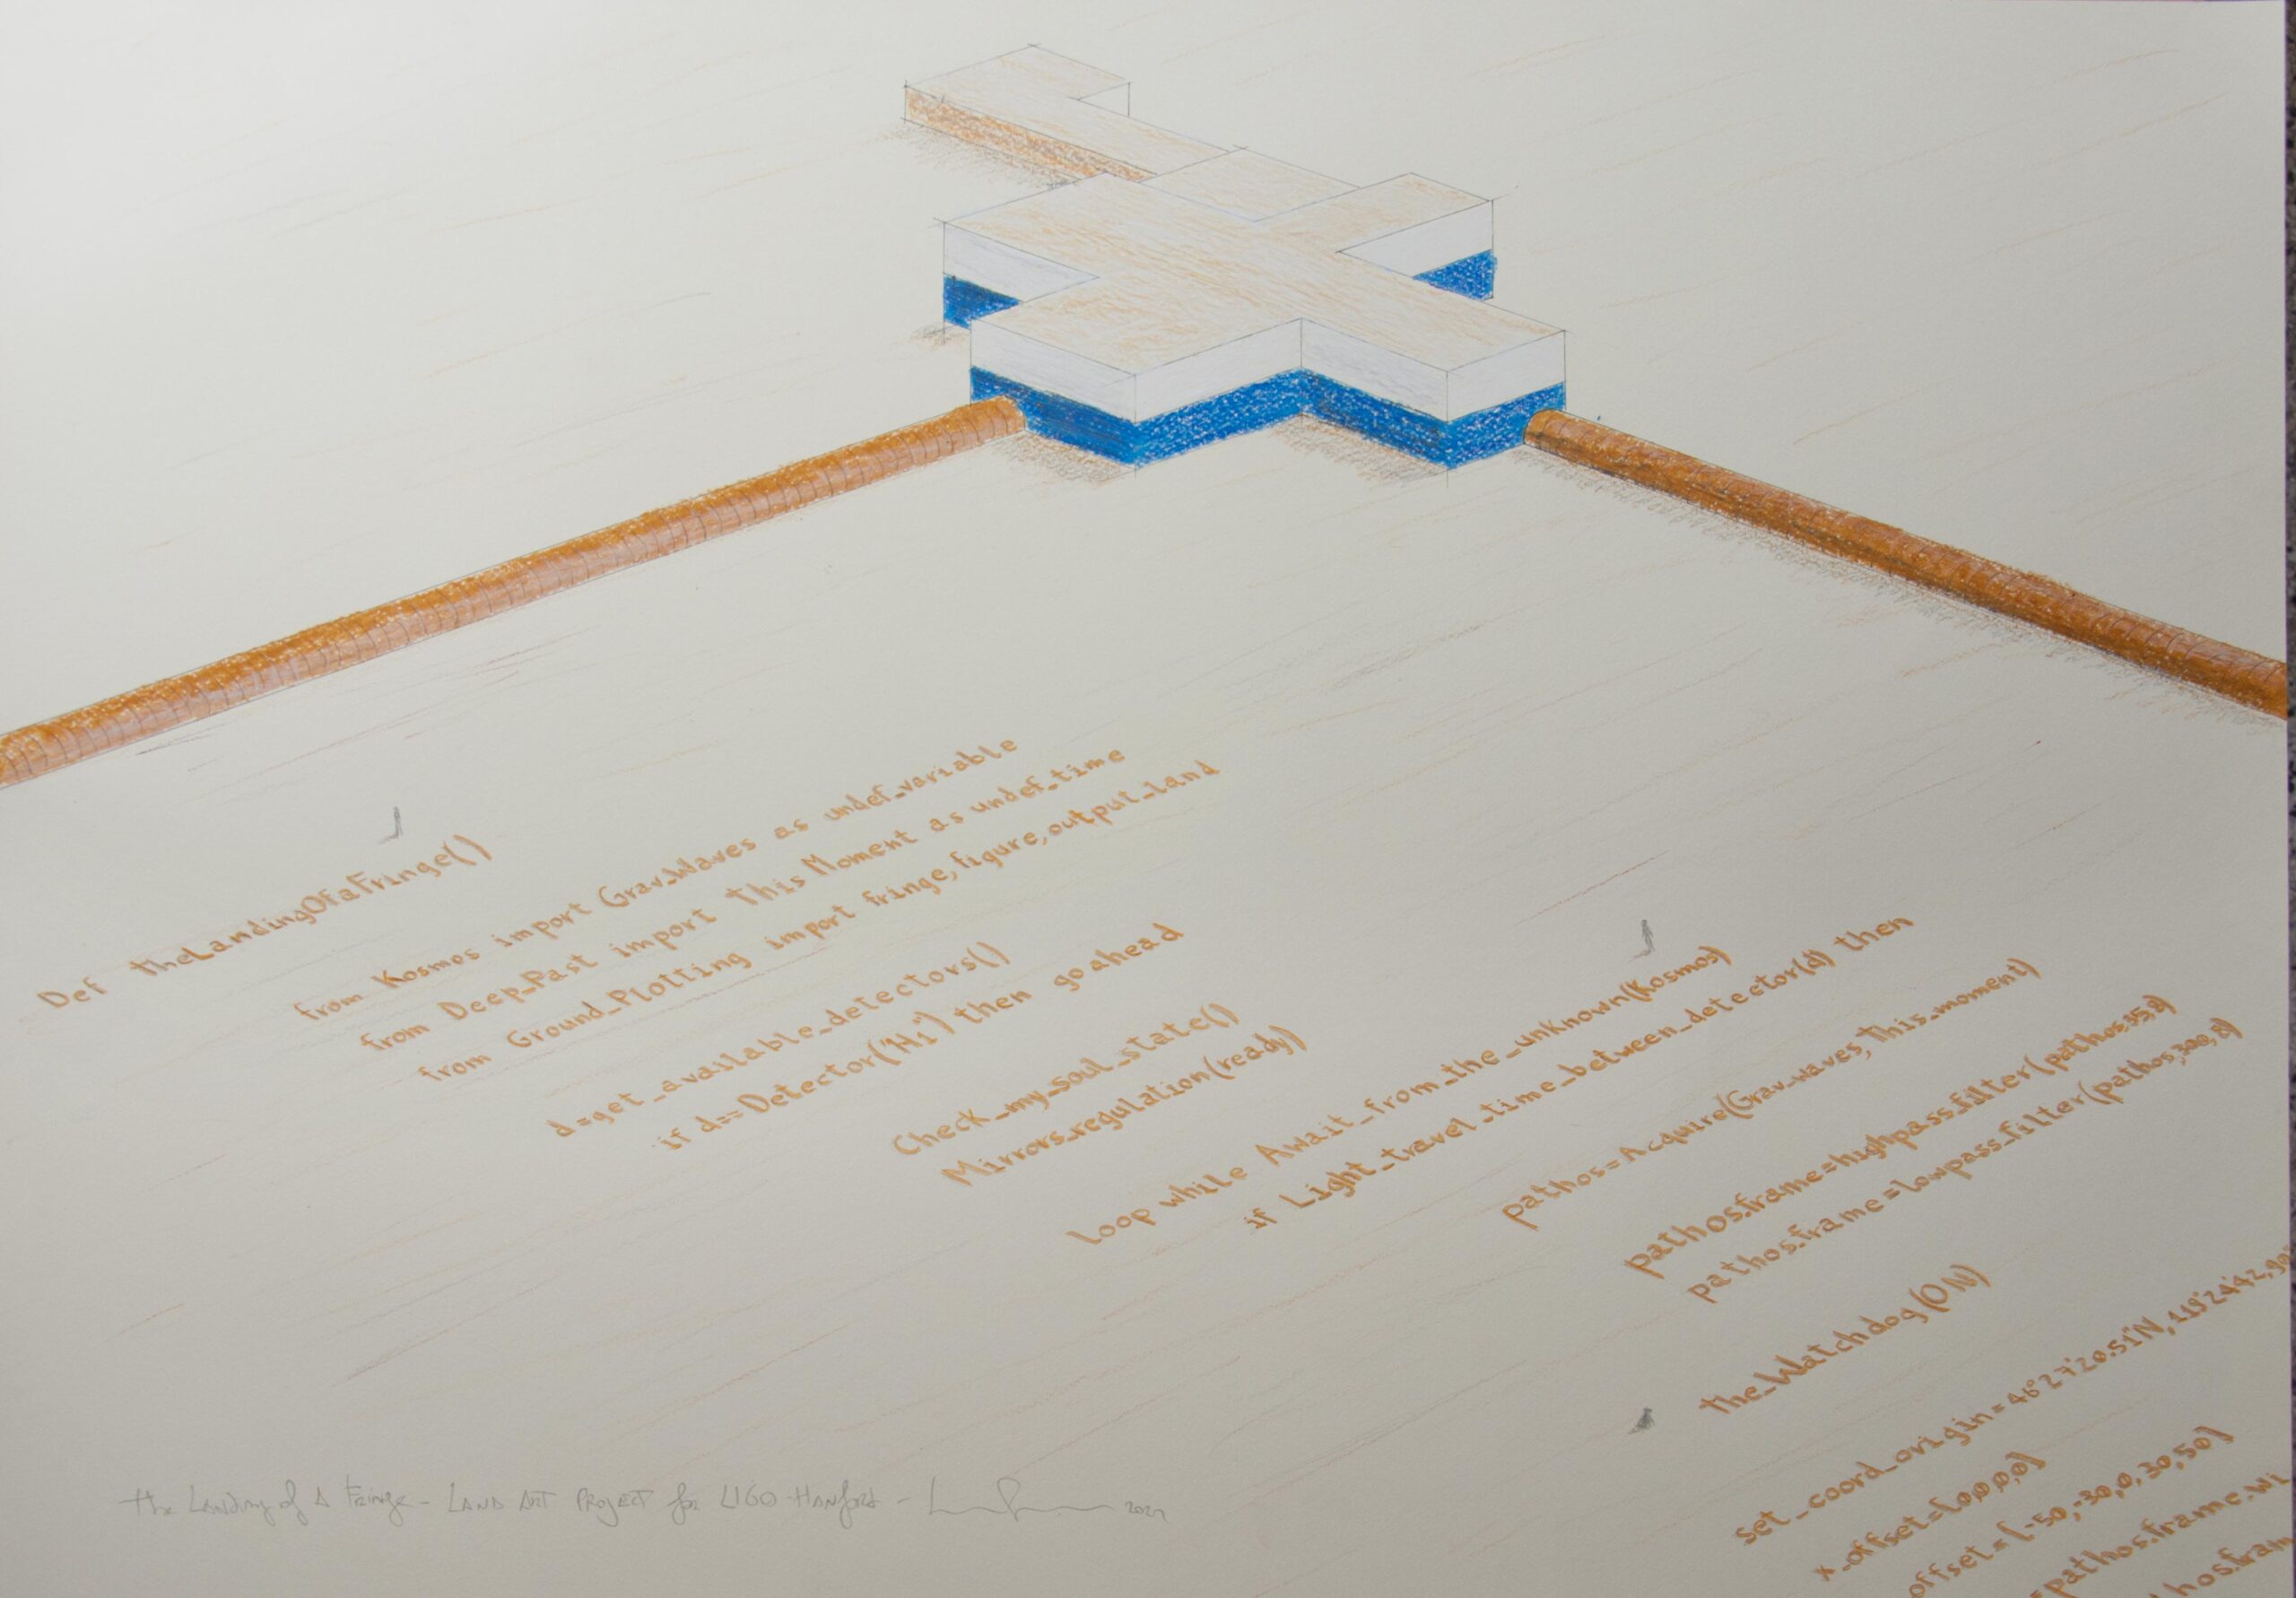 Def theLandingOfaFringe()
from Kosmos import Grav_Waves as undef_variable
from Deep_Past import This Moment as undef_time
from Ground_Plotting import fringe, figure, output_land
d=get_available_detectors()
if d==Detector("H1") then go ahead
Check_my_soul_state()
Mirrors_regulation(ready)
loop while Await_from_the_unknown(Kosmos)
if Light_travel_time_between_detector(d) then
pathos=Acquire(Grav_waves, This_moment)
pathos.frame=highpass_filter(pathos,35,8)
pathos.frame=lowpass_filter(pathos,300,8)
the_Watchdog(ON)
set_coord_origin=46°27'20.51"N,119°24'42.
x_offset=[0,0,0,0]
offset=[-50,-30,0,30,50]
=pathos.frame.wi
thos.fram
The Landing of A Fringe - LAND ART PROJECT for LIGO-HANford - 2021